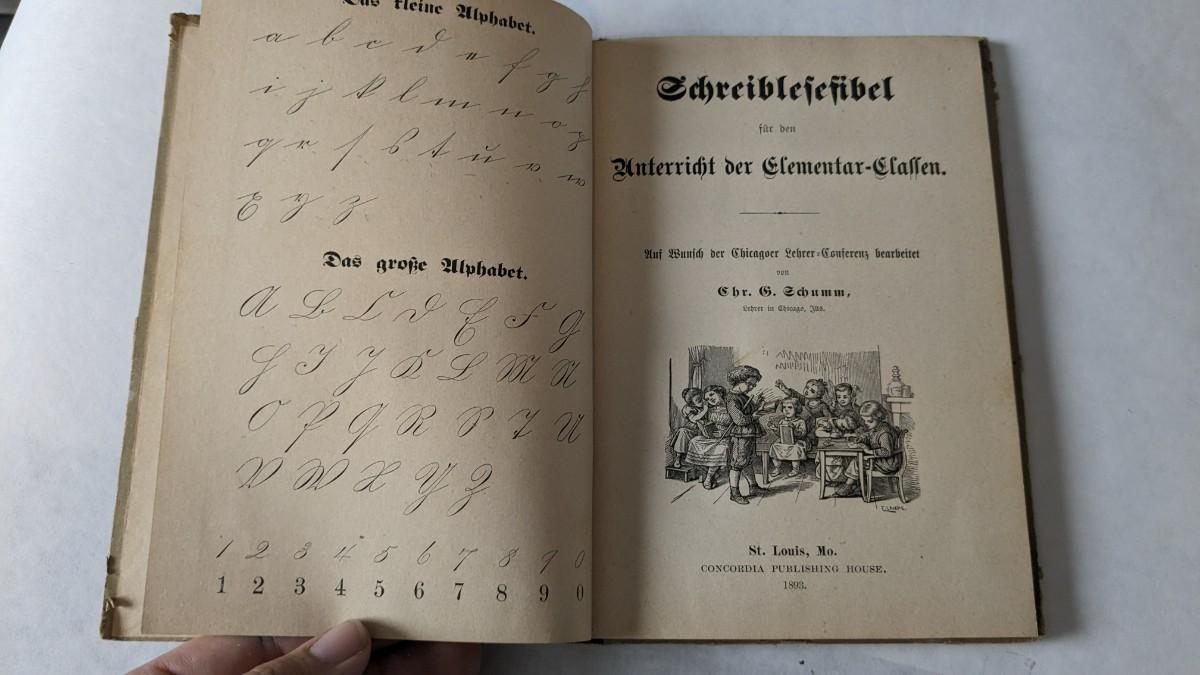 Das kleine Alphabet.
a b c d e f g h
i j k l m n o p
q r ſ s t u v w
x y z
Das große Alphabet.
A B C D E F G
H I J K L M N
O P Q R S T U
V W X Y Z
1 2 3 4 5 6 7 8 9 0
1 2 3 4 5 6 7 8 9 0
Schreibleſefibel
für den
Unterricht der Elementar-Claſſen.
Auf Wunſch der Chicagoer Lehrer-Conferenz bearbeitet
von
Chr. G. Schumm,
Lehrer in Chicago, Ills.
St. Louis, Mo.
CONCORDIA PUBLISHING HOUSE.
1893.